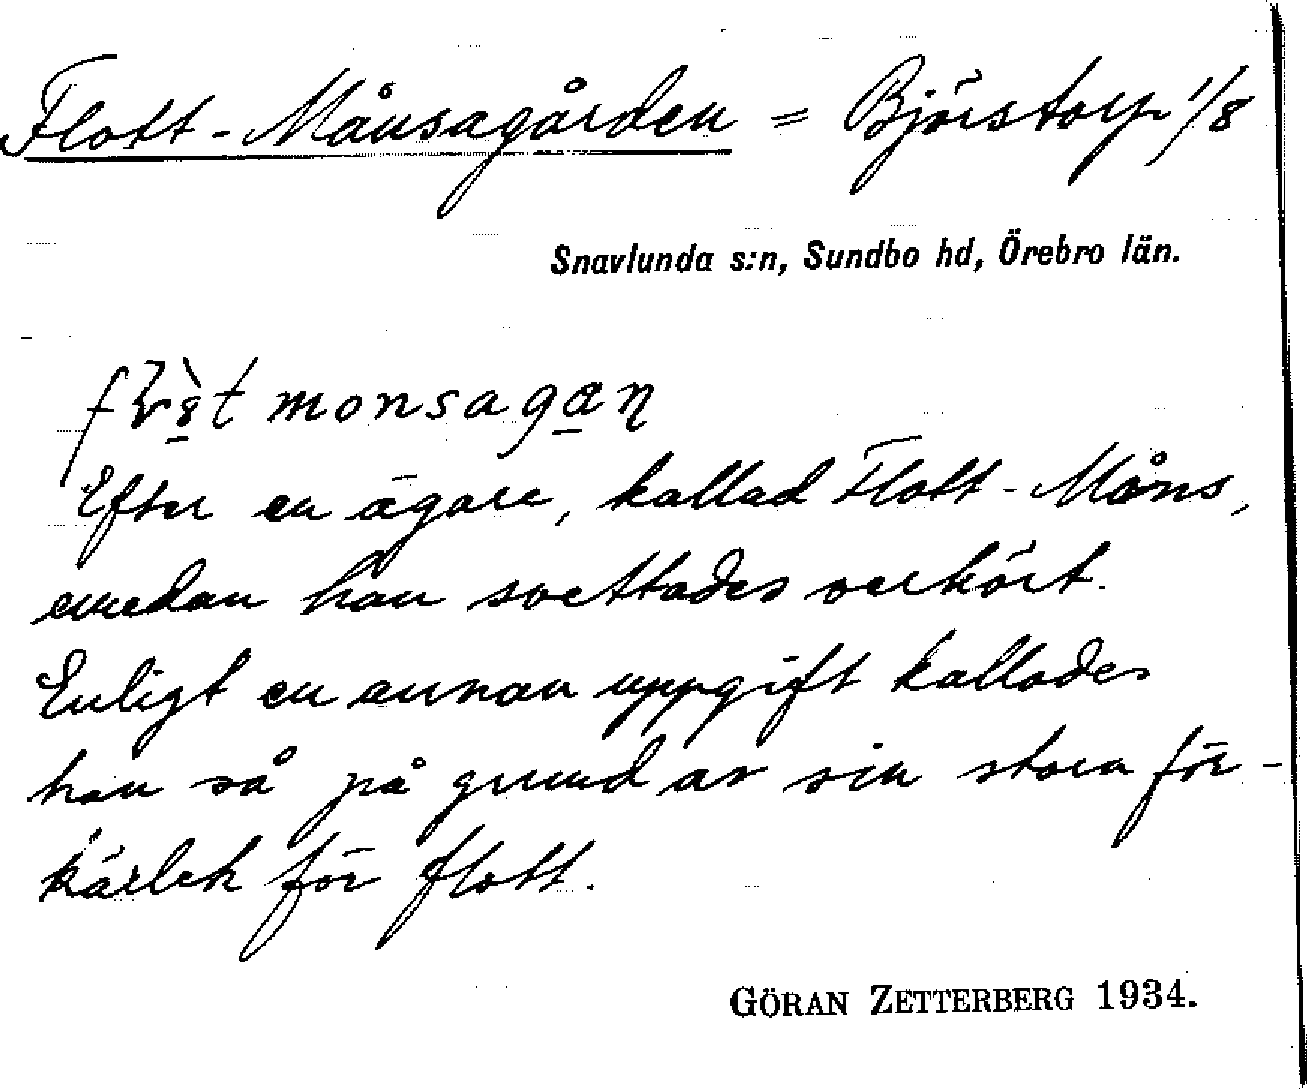 Flott-Månsagården = Björstorp 1/8
Snavlunda s:n, Sundbo hd, Örebro län.
monsagan
Efter en ägare, kallad Flott-Måns,
emedan han svettades oerhört.
Enligt en annan uppgift kallades
han så på grund av sin stora för-
kärlek för flott.
GÖRAN ZETTERBERG 1934.